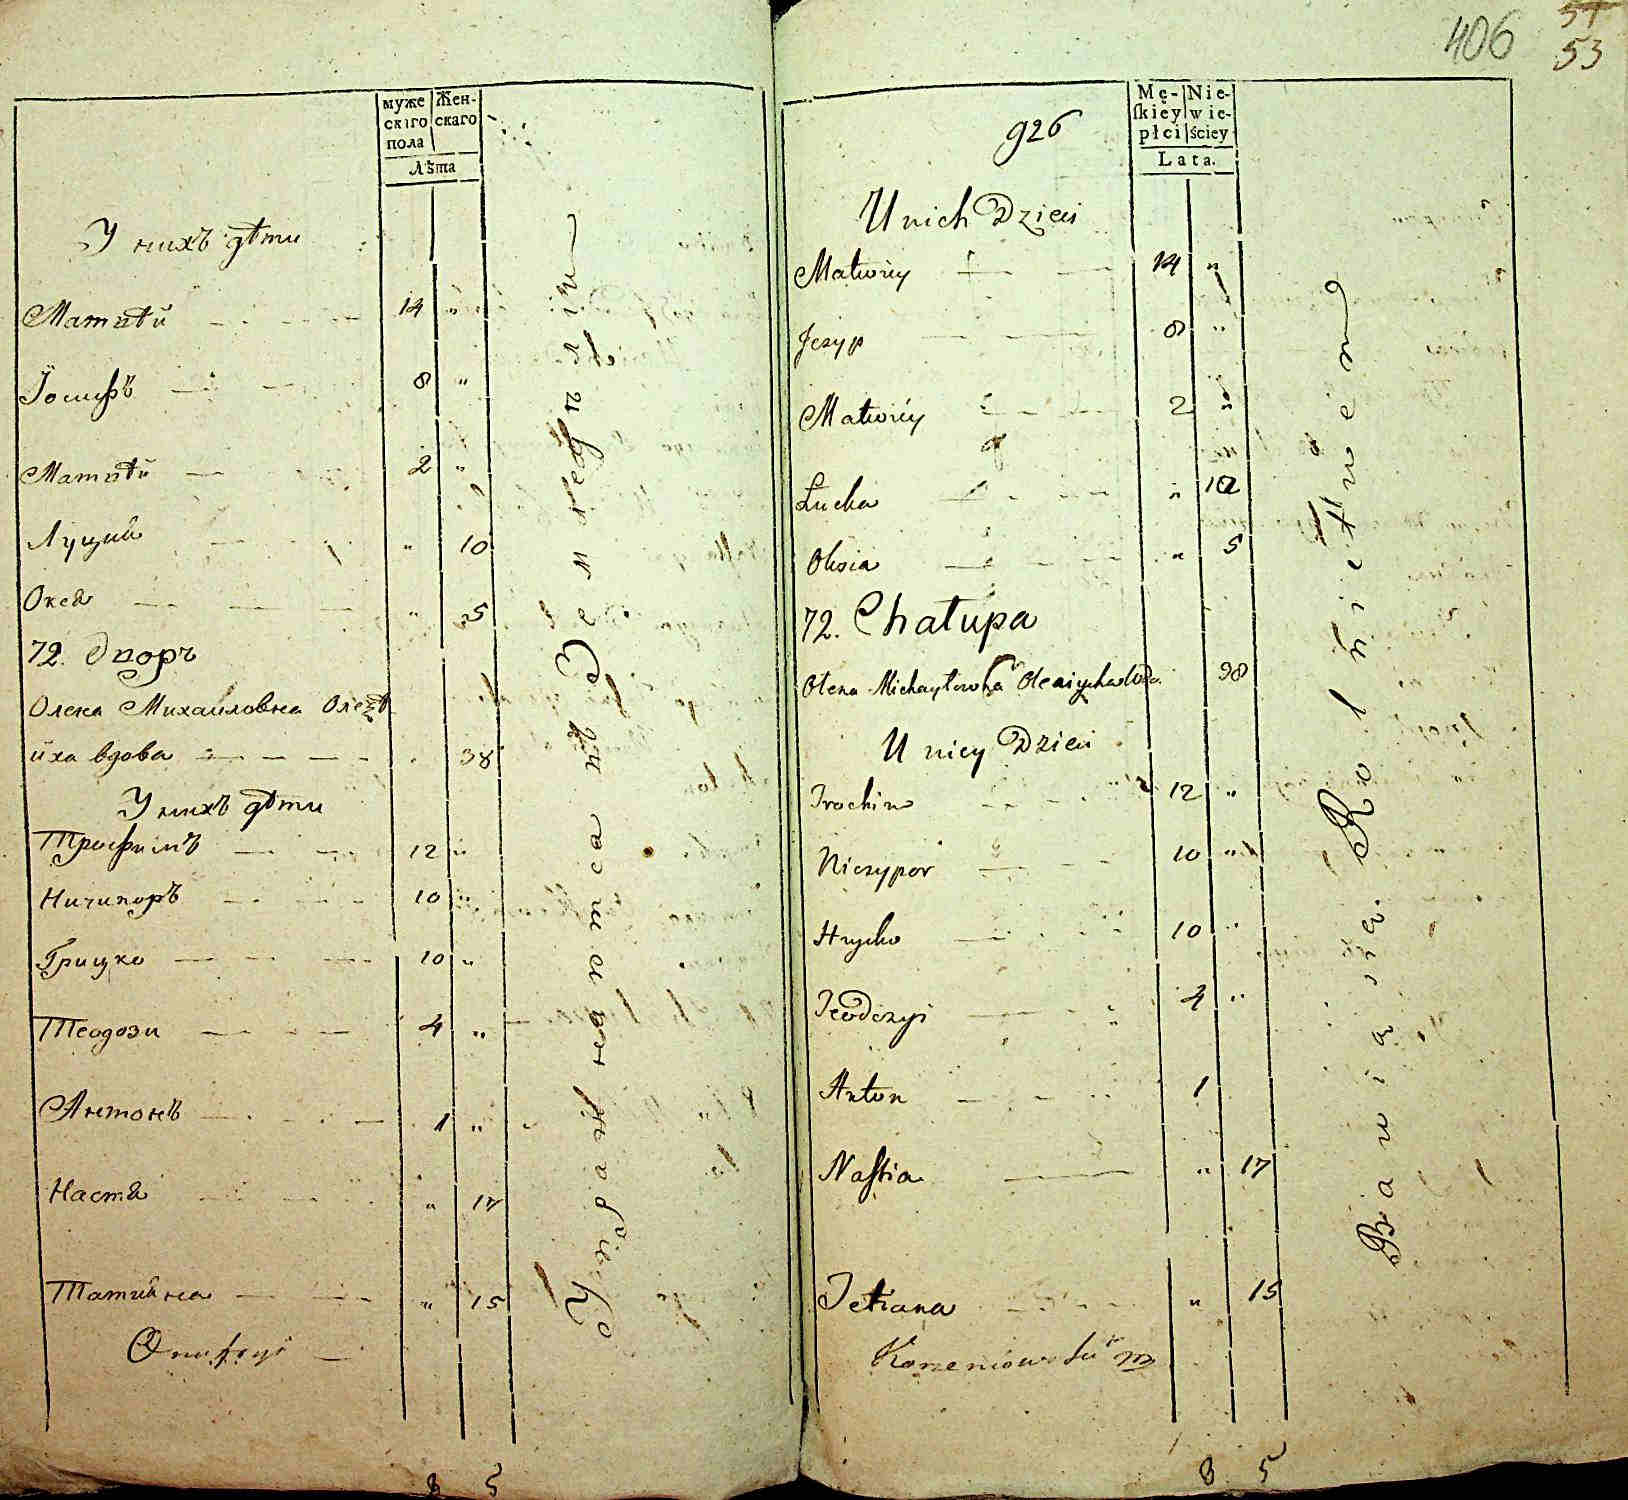 муже
скiго
пола
Жен-
скаго
Лѣта
У нихъ дѣти
Матвѣй 14 "
Іосифъ 8 "
Матвѣй 2 "
Луция " 10
Оксѣ " 5
72. Дворъ
Олена Михайловна Олеѣ
йха вдова 38
У нихъ дѣти
Трофимъ 12 "
Ничипоръ 10 "
Грицко 10 "
Теодози 4 "
Антонъ 1 "
Настѣ " 17
Татияна " 15
Onufryi
8 5
Земледѣлiи
406
53
926
Mę-
ſkiéy
płci
Nie-
wie-
ściey
Lata.
U nich Dzieci
Matwiéy 14 "
Jezyp 8 "
Matwiéy 2 "
Łucka " 12
Olisia " 5
72. Chałupa
Olena Michayłowna Oleaiycha Wdo. 38
U niey Dzieci
Trochim 12 "
Niczypor 10 "
Hrycko 10 "
Teodozyi 4 "
Anton 1
Naſtia " 17
Tetiana " 15
Korzeniowski
8 5
Bawią się Rolnictwem